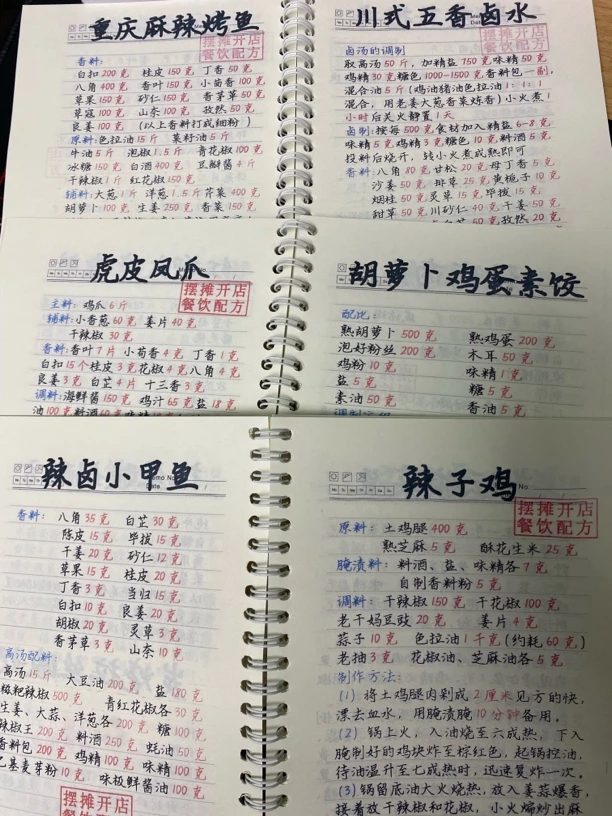 重庆麻辣烤鱼
摆摊开店
餐饮配方
香料:
白扣200克 桂皮150克 丁香50克
八角400克 香叶150克 小茴香100克
草果150克 砂仁150克 香茅草50克
草寇100克 山奈100克 孜然50克
良姜100克 (以上香料打成细粉)
原料:色拉油15斤 菜籽油5斤
牛油5斤 泡椒1.5斤 青花椒100克
冰糖150克 白酒400克 豆瓣酱4斤
干辣椒1斤 红花椒150克
辅料:大葱1斤 洋葱1.5斤 芹菜400克
胡萝卜100克 生姜250克 香菜150克
川式五香卤水
摆摊开店
餐饮配方
卤汤的调制
取高汤50斤,加精盐750克味精50克
鸡精30克糖色1000-1500克香料包一副,
混合油5斤(鸡油猪油色拉油1:1:1
混合,用老姜大葱香菜炸香)小火煮1
小时后关火静置1天
卤制:按每500克食材加入精盐6-8克
味精5克鸡精3克糖色10克料酒5克
投料后烧开,转小火煮成熟即可
香料:八角80克甘松20克母丁香5克
沙姜50克 排草25克黄栀子10克
烟桂50克灵草15克毕拨15克,
甜草50克川砂仁40克干姜50克
虎皮凤爪
摆摊开店
餐饮配方
主料:鸡爪6斤
辅料:小香葱60克 姜片40克
干辣椒30克
香料:香叶7片 小茴香4克 丁香1克
白扣15个桂皮3克花椒4克八角4克
良姜3克 白芷4片 十三香3克
调料:海鲜酱150克 鸡汁65克盐18克
胡萝卜鸡蛋素饺
摆摊开店
餐饮配方
配比:
熟胡萝卜500克 熟鸡蛋200克
泡好粉丝200克 木耳50克
鸡粉10克 味精1克
盐5克 糖5克
素油50克 香油5克
辣卤小甲鱼
香料: 八角35克 白芷30克
陈皮15克 毕拔15克
干姜20克 砂仁12克
草果15克 桂皮20克
丁香3克 当归15克
白扣10克 良姜20克
胡椒20克 灵草3克
香茅草3克 山奈10克
高汤配料:
高汤15斤 大豆油200克 盐180克
糍粑辣椒500克 青红花椒各30克
生姜、大蒜、洋葱各200克 糖100克
辣椒王200克 料酒250克 蚝油50克
香料包200克 鸡精100克 味精100克
乙基麦芽粉10克 味极鲜酱油100克
摆摊开店
餐饮配方
辣子鸡
摆摊开店
餐饮配方
原料:土鸡腿400克
熟芝麻5克 酥花生米25克
腌渍料:料酒、盐、味精各7克
自制香料粉5克
调料:干辣椒150克 干花椒100克
老干妈豆豉20克 姜片4克
蒜子10克 色拉油1千克(约耗60克)
老抽3克 花椒油、芝麻油各5克
制作方法:
(1)将土鸡腿肉剁成2厘米见方的块,
漂去血水,用腌渍腌10分钟备用。
(2)锅上火,入油烧至六成热,下入
腌制好的鸡块炸至棕红色,起锅控油,
待油温升至七成热时,迅速复炸一次。
(3)锅留底油大火烧热,放入姜蒜爆香,
接着放干辣椒和花椒,小火煸炒出麻